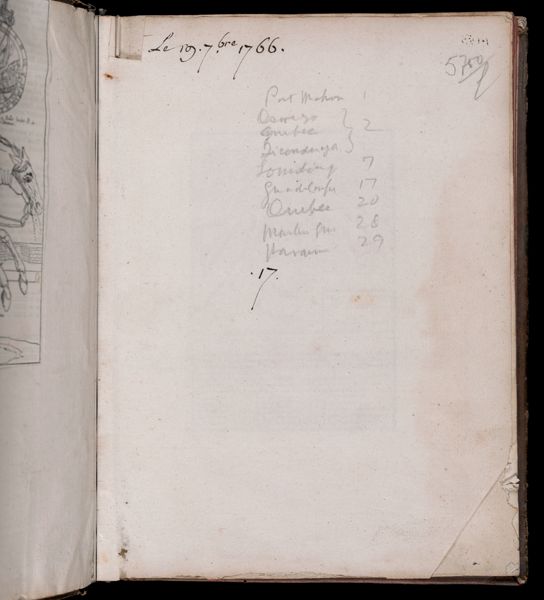 Le 19. 7bre 1766.
5750
Port Mahon 1
Oswego
Quebec 2
Ticonderoga
Louisbourg 7
Guadeloupe 17
Quebec 20
Martinique 28
Havana 29
.17.